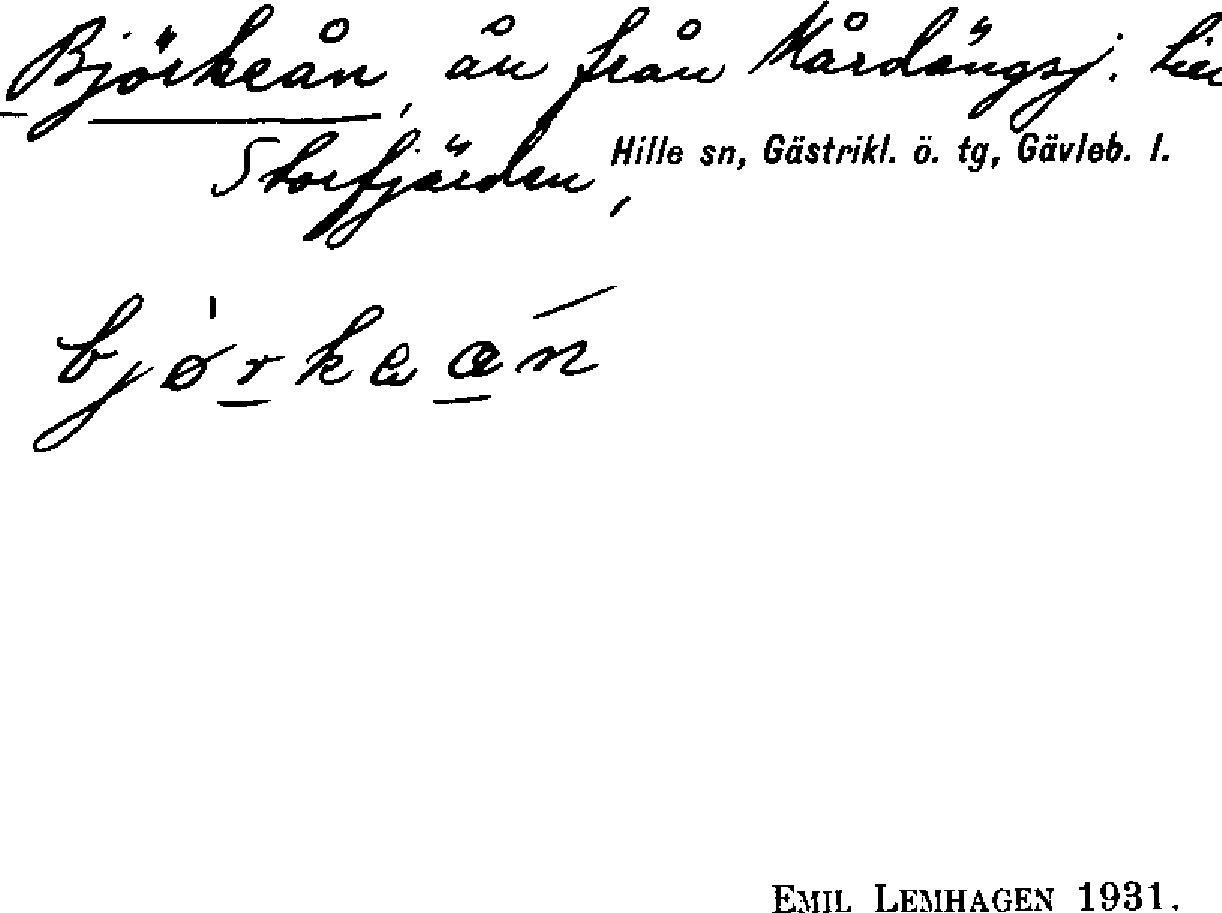 Björkeån, ån från Mårdängsj. till
Storfjärden,
Hille sn, Gästrikl. ö. tg, Gävleb. l.
bjørkeån
EMIL LEMHAGEN 1931.